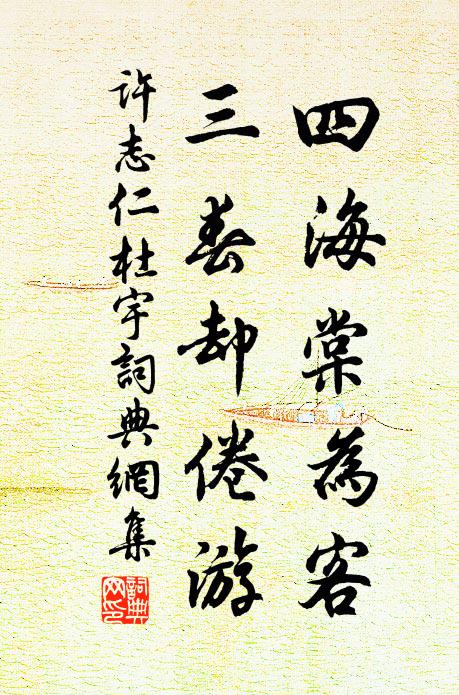 四海棠為客
三春却倦游
許志仁杜宇詞典網集
詞典
网印